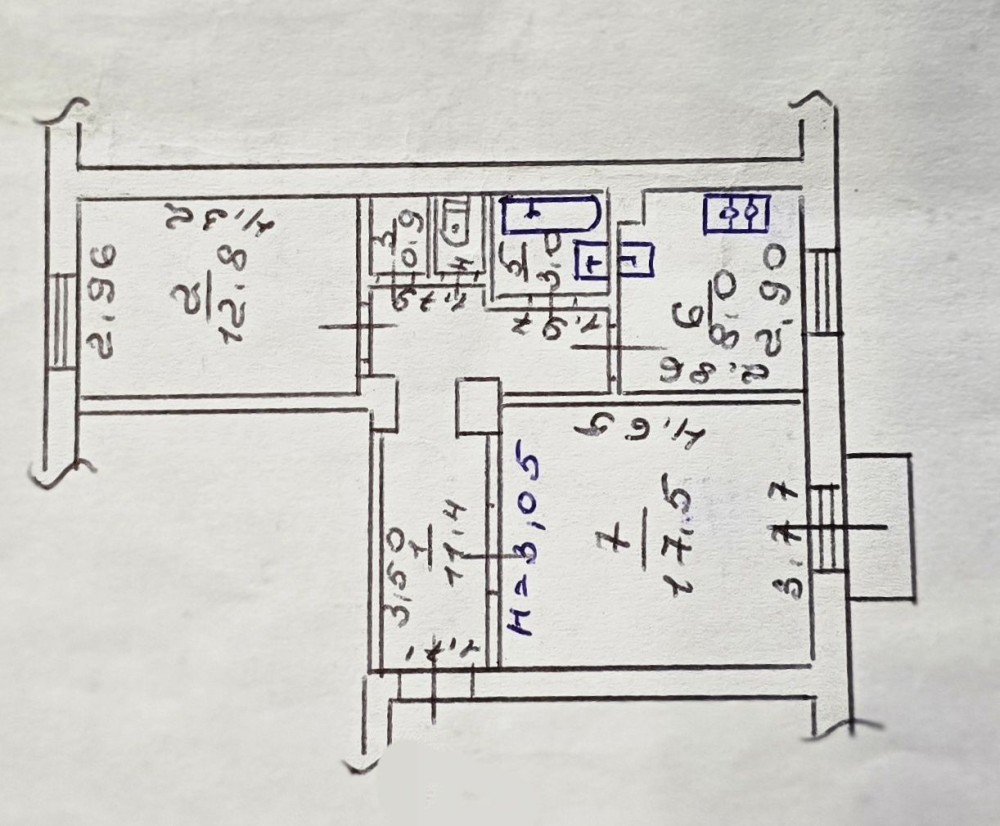 2,96
4,32
2
12.8
3
0.9
4
1.79
5
3.0
6
8.0
2,90
2.86
4.65
3,50
1
11.4
1.71
H=3,05
7
17.5
3.77